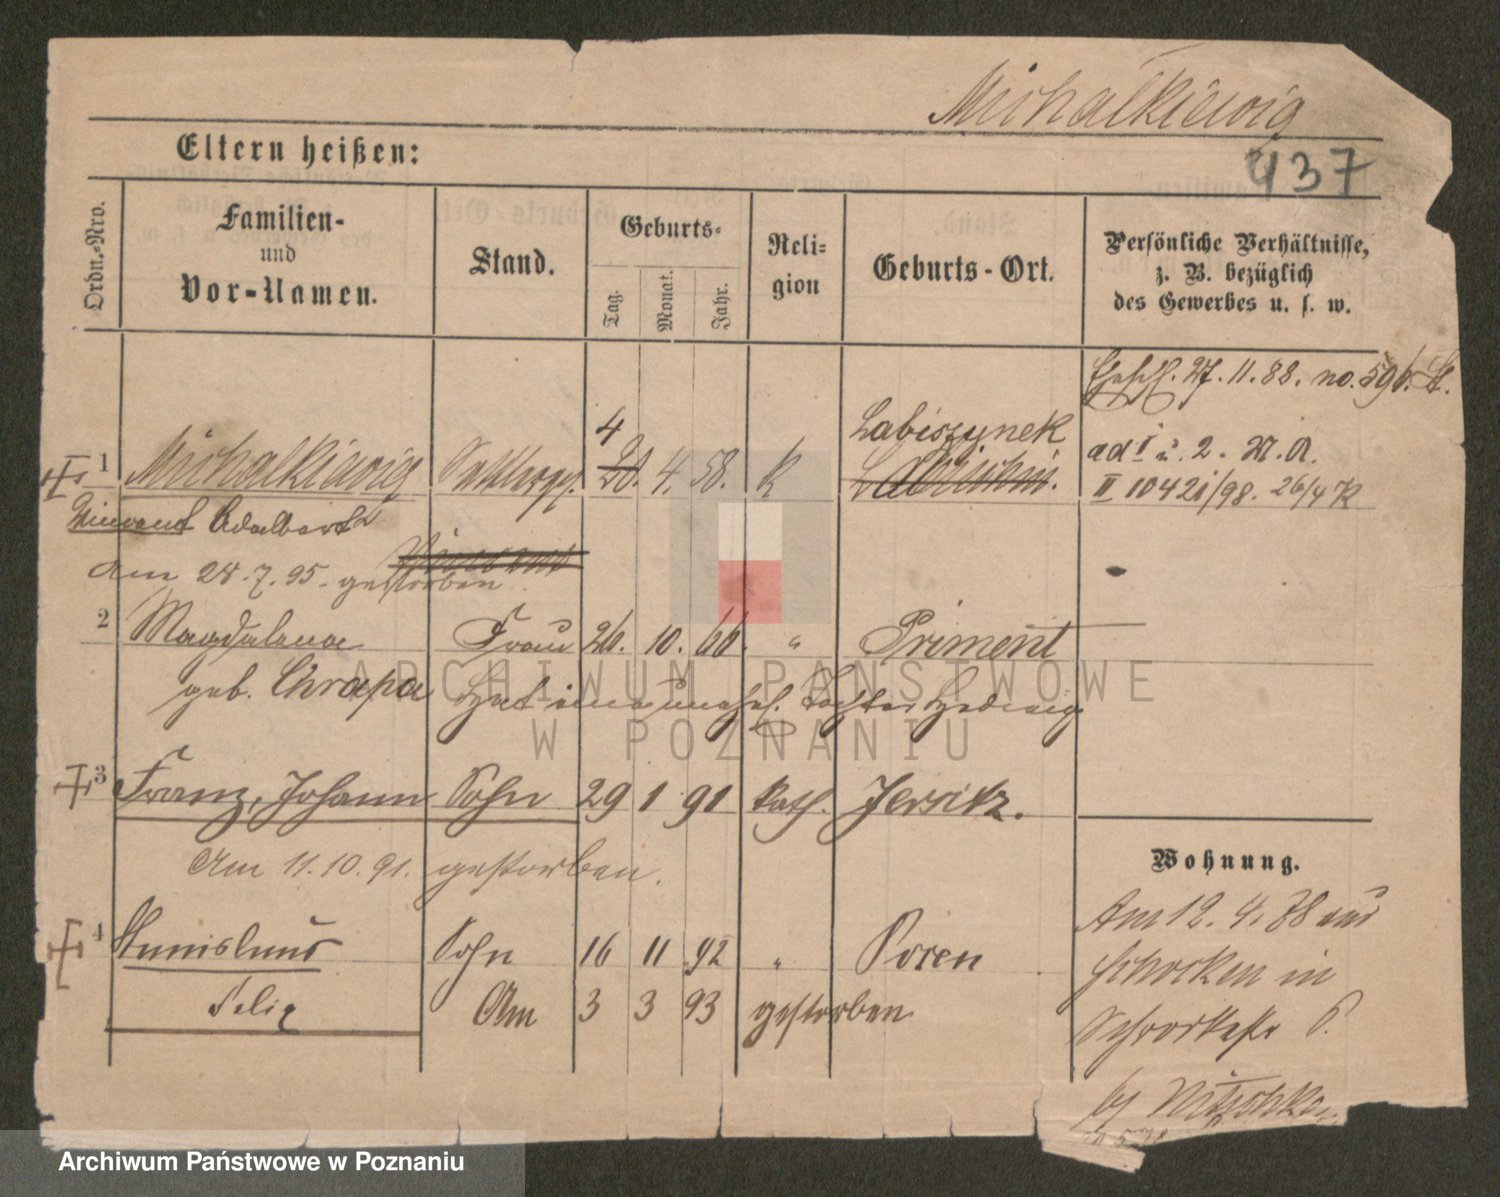 Michalkiewicz
437
Eltern heißen:
Ordn.-Nro.
Familien- und Vor-Namen.
Stand.
Geburts-
Tag. Monat. Jahr.
Religion
Geburts-Ort.
Persönliche Verhältnisse, z. B. bezüglich des Gewerbes u. s. w.
27. 11. 88. no. 596.
4
Labiszynek
ad 1 u. 2. N. A.
1 Michalkiewicz Sattlerges. 20. 4. 58. k
II 10421/98. 26/4 K
Vincent Adalbert
Vincent
am 28.7.95. gestorben
2 Magdalena Frau 26. 10. 66. " Priment
geb. Chrapa Hat eine unehel. Tochter Hedwig
3 Franz, Johann Sohn 29 1 91 kath. Jersitz.
Am 11.10.91. gestorben.
Wohnung.
Am 12. 4. 88 aus
4 Stanislaus Sohn 16 11 92 " Posen
Schocken in
Felix Am 3 3 93 gestorben
6.
by Nitschke
ARCHIWUM PAŃSTWOWE
W POZNANIU
Archiwum Państwowe w Poznaniu